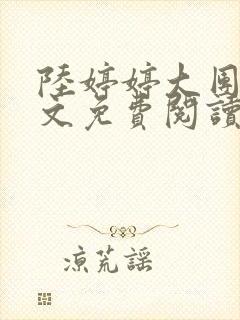 陸婷婷大團
文免費閱讀
涼荒謠